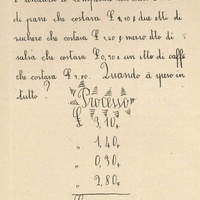 di pane che costava £ 3,10 e due etto di
zuchero che costava £ 1,40 e mezzo etto di
salsa che costava £ 0,90 e un etto di caffè
che costava £ 2,80. Quando à speso in
tutto?
Processo
£ 3,10+
" 1,40+
" 0,90+
" 2,80=